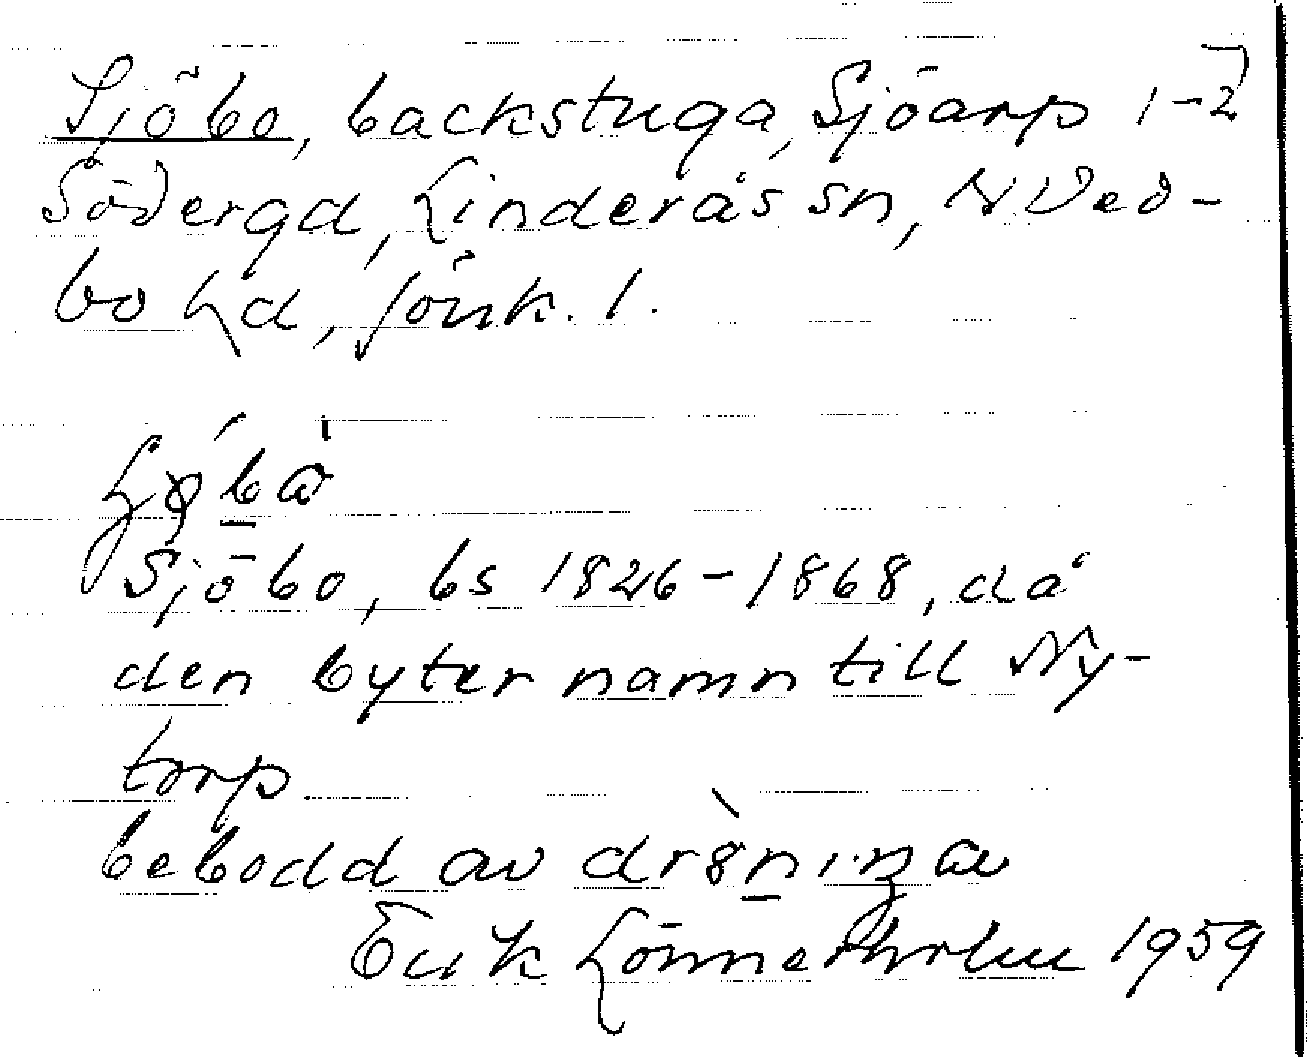 Sjöbo, backstuga, Sjöarp 1-2
Södergd, Linderås sn, N Ved-
bo hd, Jönk. l.
Sjöbo, bs 1826-1868, då
den byter namn till Ny-
torp
bebodd av
Erik Lönnerholm 1959